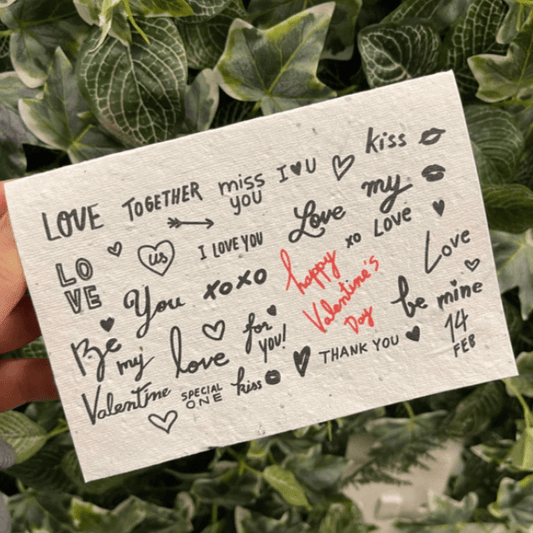 LOVE
TOGETHER
miss
you
I ♥ U
kiss
LO
VE
us
I LOVE YOU
Love my
Be my
Valentine
You
xoxo
happy
Valentine's
Day
xo LOVE
Love
love
for
you!
be mine
SPECIAL
ONE
kiss
THANK YOU
14
FEB